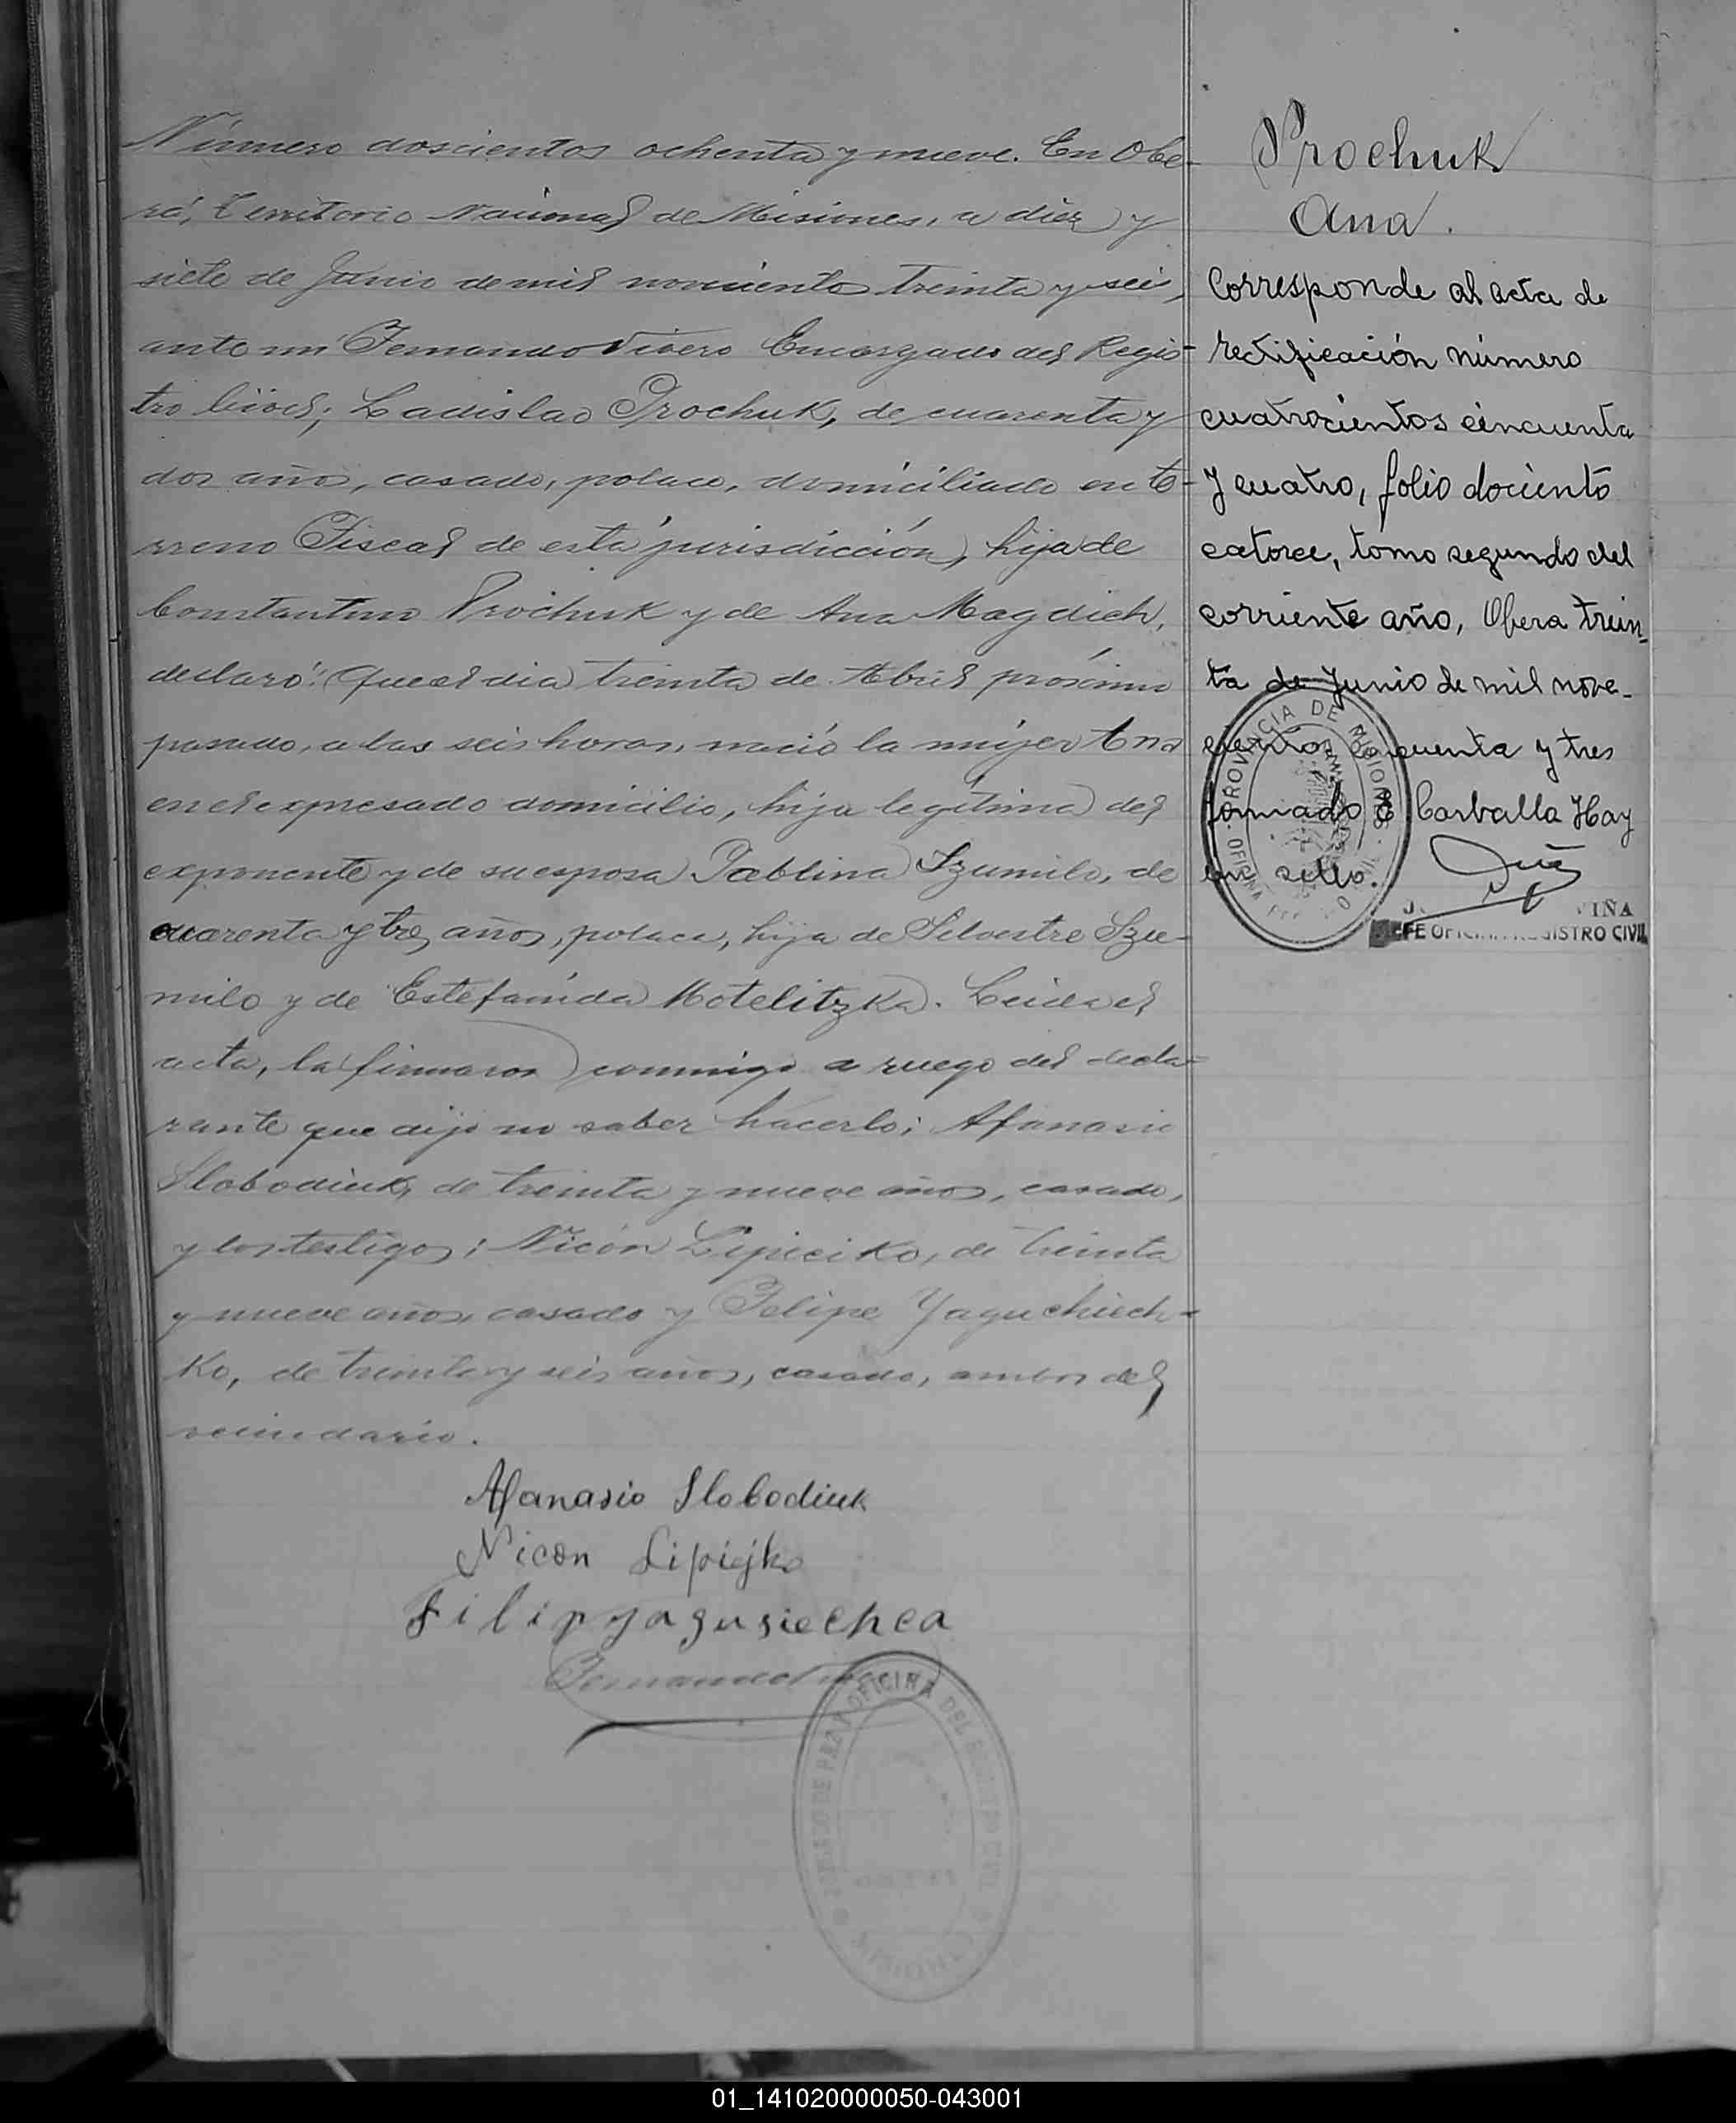 Número doscientos ochenta y nueve. En Obe-
rá, Territorio Nacional de Misiones, a diez y
siete de Junio de mil noveciento treinta y seis,
ante mi Fernando Vivero Encargado del Regis-
tro Civil; Ladislao Prochuk, de cuarenta y
dos años, casado, polaco, domiciliado en te-
rreno Fiscal de esta jurisdicción, hija de
Constantino Prochuk y de Ana Magdich,
declaró: Que el dia treinta de Abril próximo
pasado, a las seis horas, nació la mujer Ana
en el expresado domicilio, hija legítima del
exponente y de su esposa Pablina Szumilo, de
cuarenta y tres años, polaca, hija de Silvestre Szu-
milo y de Estefanida Motelitzka. Leida el
acta, la firmaron conmigo a ruego del decla-
rante que dijo no saber hacerlo; Afanasio
Slobodiuk, de treinta y nueve años, casado,
y los testigos; Nicón Lipieciko, de treinta
y nueve años, casado y Felipe Yaguchiech-
ko, de treinta y seis años, casado, ambos del
vecindario.
Afanasio Slobodiuk
Nicon Lipiejko
Filip yagusiechca
OFICINA DEL REGISTRO CIVIL
JUZGADO DE PAZ
Prochuk
Ana.
Corresponde al acta de
rectificación número
cuatrocientos cincuenta
y cuatro, folio dociento
catorce, tomo segundo del
corriente año, Obera trein-
ta de Junio de mil nove-
cientos cincuenta y tres
firmado Carballa Hay
un sello.
PROVINCIA DE MISIONES
OFICINA
IÑA
JEFE OFICINA REGISTRO CIVIL
01_141020000050-043001